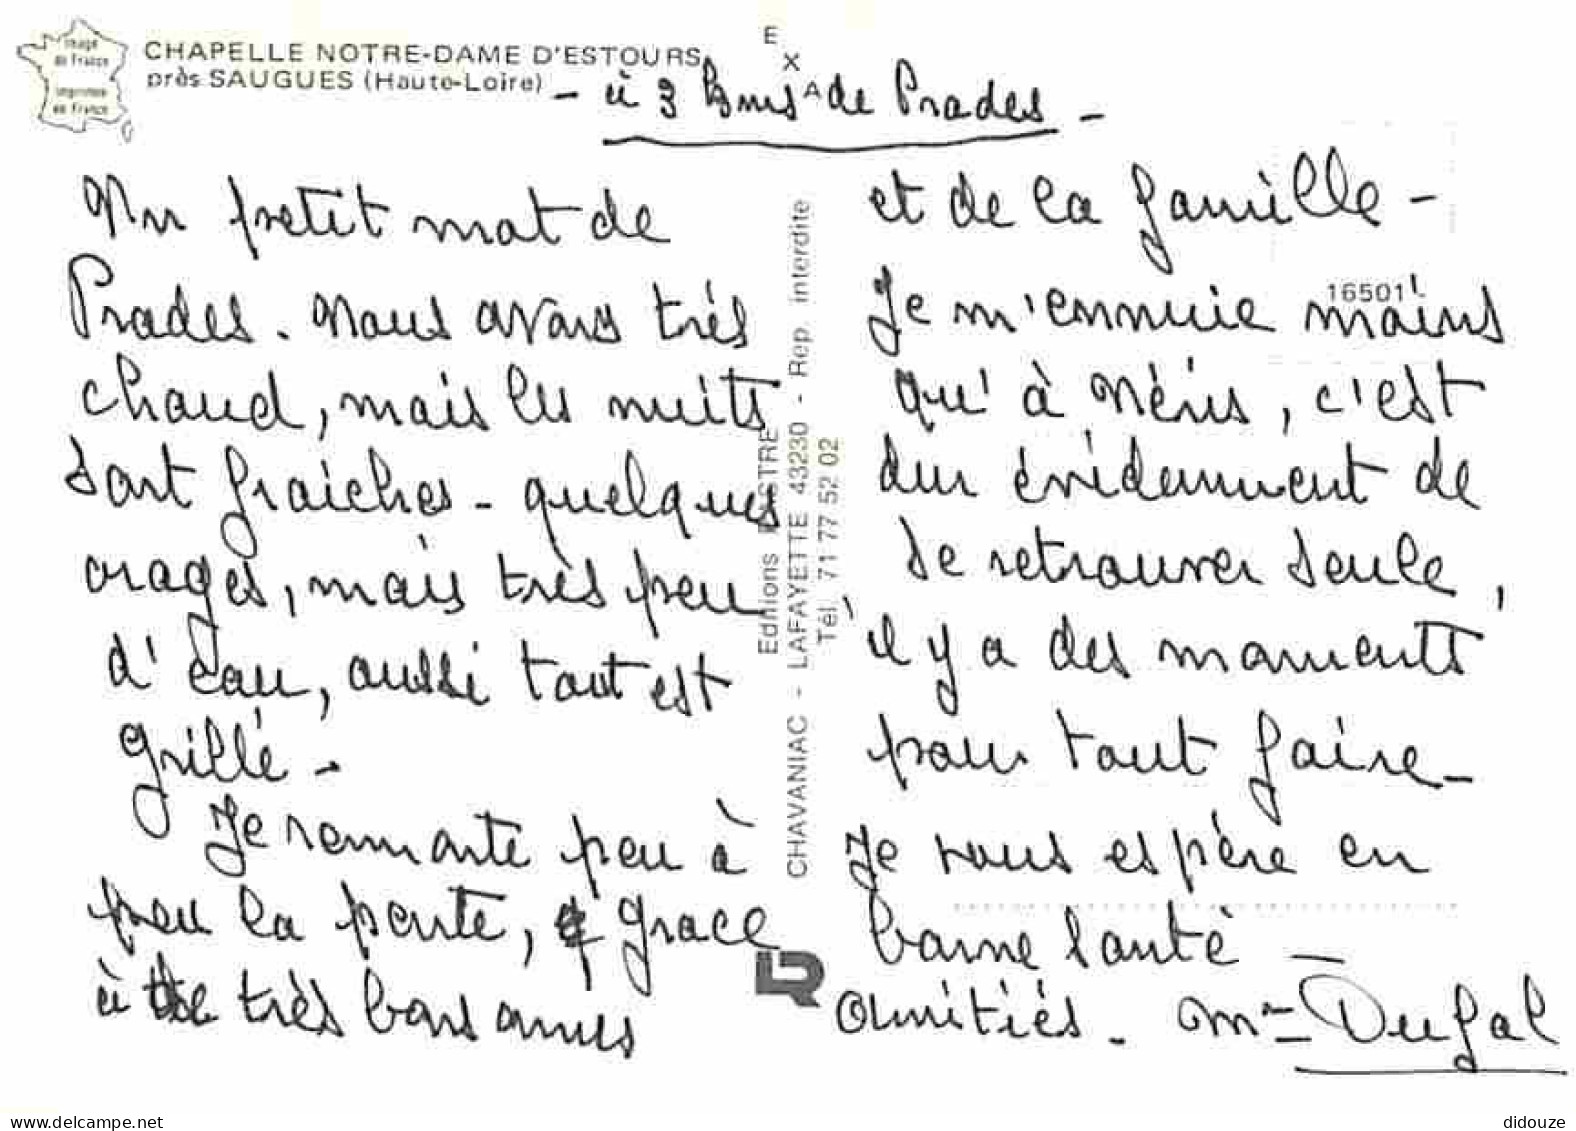 Image
de France
Imprimée
en France
CHAPELLE NOTRE-DAME D'ESTOURS
près SAUGUES (Haute-Loire)
- à 3 kms de Prades -
E
X
A
Un petit mot de
Prades. Nous avons très
chaud, mais les nuits
sont fraiches - quelques
orages, mais très peu
d'eau, aussi tout est
grillé -
Je remonte peu à
peu la pente, grace
à de très bons amis
Editions
CHAVANIAC - LAFAYETTE 43230 - Rep. interdite
Tél. 71 77 52 02
LR
16501
et de la famille -
Je m'ennuie moins
qu'à Néris, c'est
dur évidemment de
se retrouver seule,
il y a des moments
pour tout faire -
Je vous espère en
bonne santé -
Amitiés. Mme Dufal
www.delcampe.net
didouze